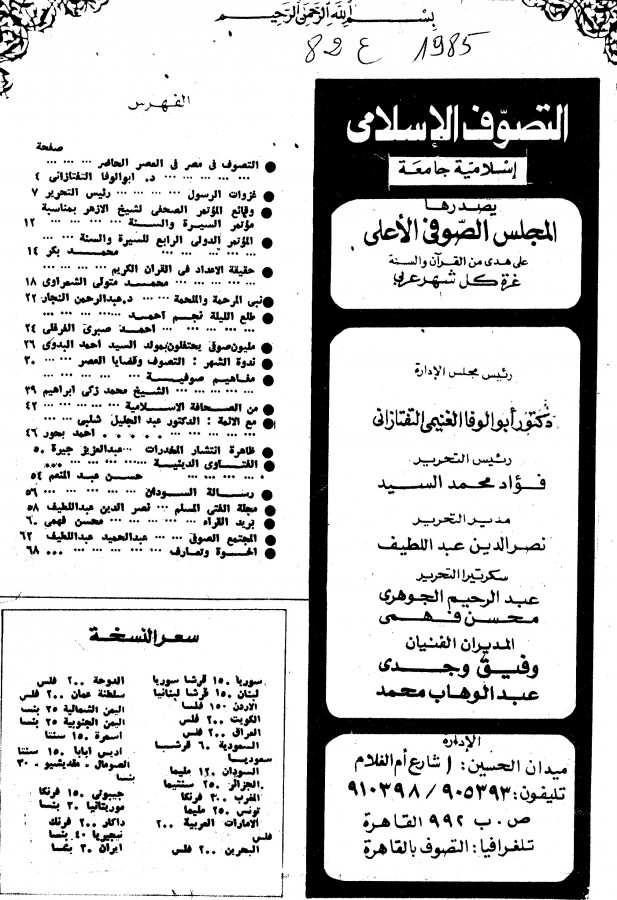 بسم الله الرحمن الرحيم
82 ع 1985
التصوّف الإسلامى
إسلامية جامعة
يصدرها
المجلس الصوفى الأعلى
على هدى من القرآن والسنة
غرة كل شهر عربى
رئيس مجلس الإدارة
دكتور أبو الوفا الغنيمى التفتازانى
رئيس التحرير
فؤاد محمد السيد
مدير التحرير
نصر الدين عبد اللطيف
سكرتيرا التحرير
عبد الرحيم الجوهرى
محسن فهمى
المديران الفنيان
وفيق وجدى
عبد الوهاب محمد
الإدارة
ميدان الحسين: ١ شارع أم الغلام
تليفون: ٩٠٥٣٩٣ / ٩١٠٣٩٨
ص . ب ٩٩٢ القاهرة
تلغرافيا: التصوف بالقاهرة
الفهرس
صفحة
● التصوف فى مصر فى العصر الحاضر ... ...
... ... ... ... د. ابوالوفا التفتازانى ٤
● غزوات الرسول ... ... ... رئيس التحرير ٧
● وقائع المؤتمر الصحفى لشيخ الازهر بمناسبة
مؤتمر السيرة والسنة ... ... ... ... ١٢
● المؤتمر الدولى الرابع للسيرة والسنة ...
... ... ... ... ... محمد بكر ١٤
● حقيقة الاعداد فى القران الكريم ... ...
... ... ... محمد متولى الشعراوى ١٨
● نبى المرحمة والملحمة ... د.عبدالرحمن النجار ٢٢
● طلع الليلة نجم احمد ... ... ...
... ... ... احمد صبرى الفرغلى ٢٤
● مليون صوفى يحتفلون بمولد السيد احمد البدوى ٢٦
● ندوة الشهر : التصوف وقضايا العصر ... ٣٠
● مفاهيم صوفية ... ... ... ...
... ... ... الشيخ محمد زكى ابراهيم ٣٩
● من الصحافة الاسلامية ... ... ... ٤٢
● مع الائمة : الدكتور عبد الجليل شلبى ...
... ... . . . . . احمد بحور ٤٦
● ظاهرة انتشار المخدرات ... عبدالعزيز جيرة ٥٠
● الفتاوى الدينية ... ... ... ...
... ... ... ... حسن عبد المنعم ٥٤
● رسالة السودان ... ... ... ... ٥٦
● مجلة الفتى المسلم ... نصر الدين عبداللطيف ٥٨
● بريد القراء ... ... ... محسن فهمى ٦٠
● المجتمع الصوفى ... عبدالحميد عبداللطيف ٦٢
● اخوة وتعارف ... ... ... ... ٦٨
سعر النسخة
سوريا ١٥٠ قرشا سوريا
لبنان ١٥٠ قرشا لبنانيا
الاردن ١٥٠ فلسا
الكويت ٢٠٠ فلس
العراق ٢٠٠ فلس
السعودية ٦٠ قرشا
سعوديا
السودان ١٢٠ مليما
الجزائر ٢٥٠ سنتيما
المغرب ٣٠٠ فرنكا
تونس ٢٥٠ مليما
الامارات العربية ٢٠٠
فلس
البحرين ٢٠٠ فلس
الدوحة ٢٠٠ فلس
سلطنة عمان ٢٠٠ فلس
اليمن الشمالية ٢٥ بنسا
اليمن الجنوبية ٢٥ بنسا
اسمرة ١٥٠ سنتا
اديس ابابا ١٥٠ سنتا
الصومال - مقديشيو - ٣٠
بنسا
جيبوتى ١٥٠ فرنكا
موريتانيا ٣٠ بنسا
داكار ٢٠٠ فرنك
نيجيريا ٤٠ بنسا
ايران ٣٠ بنسا